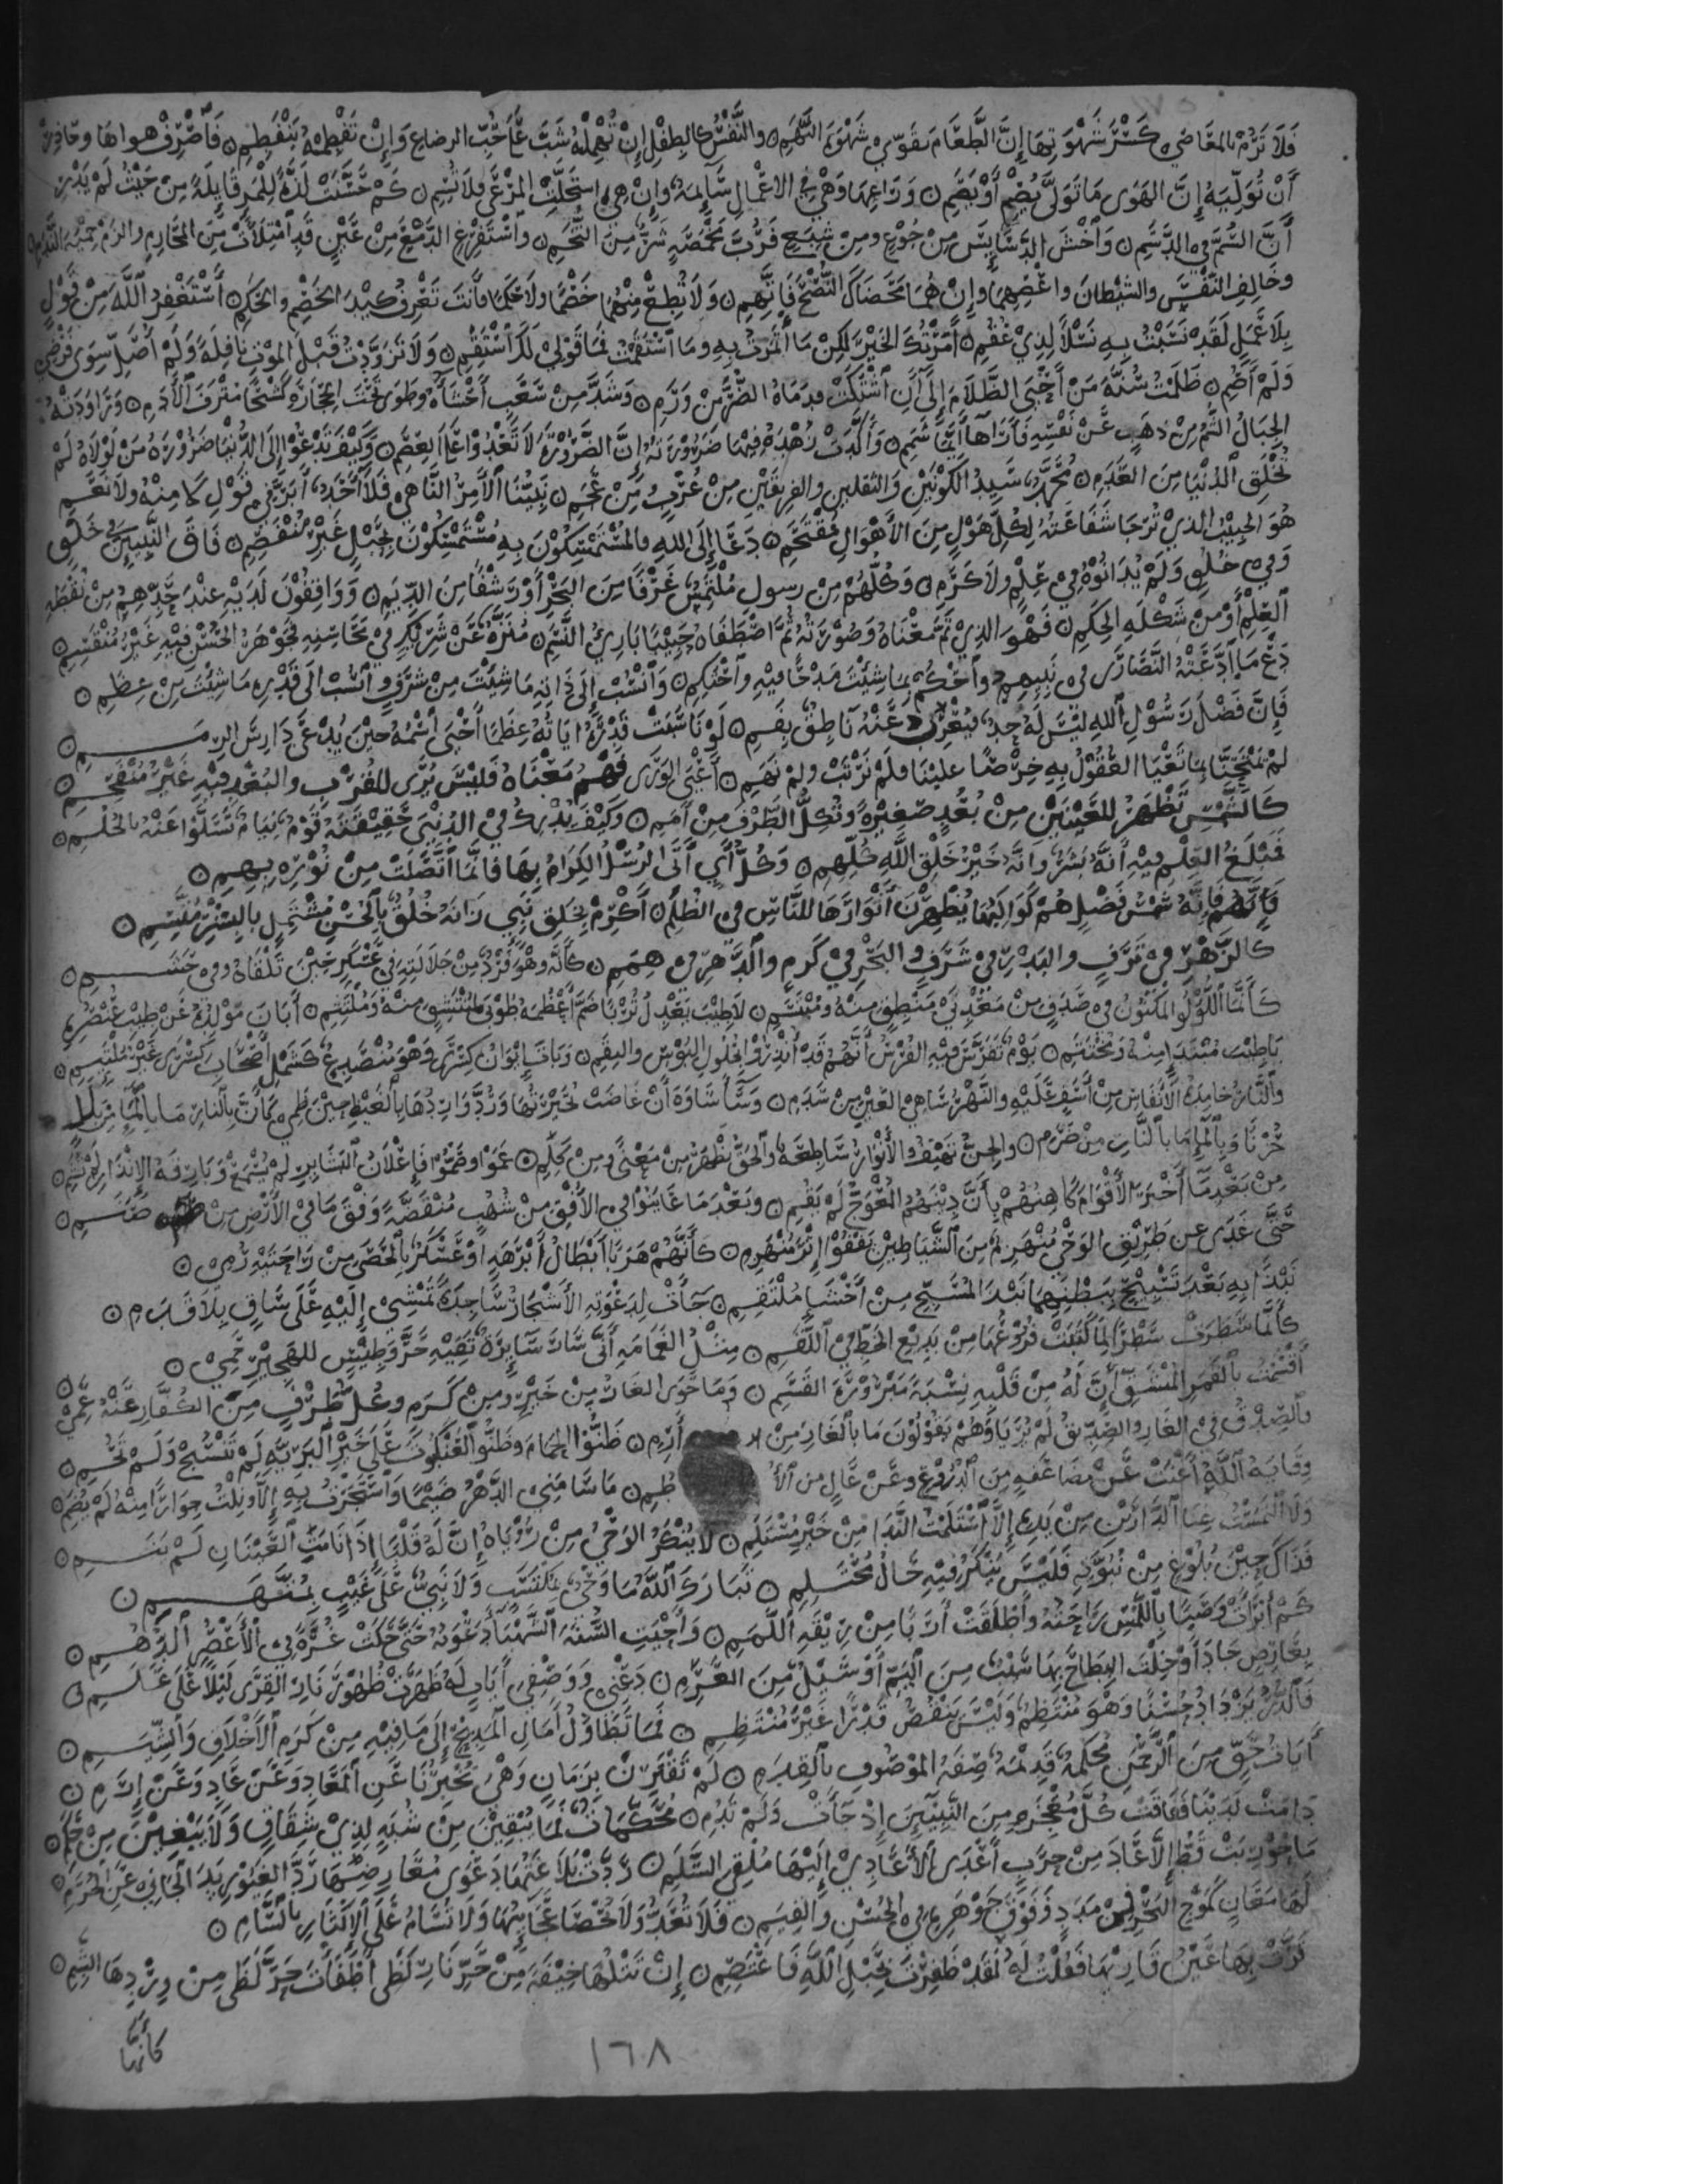 فَلَا تَرُمْ بالمعَاصِي كَسْرَ شَهْوَتِهَا إِنَّ الطَّعَامَ يُقَوِّي شَهْوَةَ النَّهِمِ ۝ والنَّفْسُ كالطِفْلِ إِنْ تُهْمِلْهُ شَبَّ عَلَى حُبِّ الرضاعِ وَإِنْ تَفْطِمْهُ يَنْفَطِمِ ۝ فَاصْرِفْ هواهَا وحَاذِرْ
أَنْ تُوَلِّيَهُ إِنَّ الهَوَى مَا تَوَلَّى يُصْمِ أَوْ يَصِمِ ۝ وَرَاعِهَا وَهْيَ فِي الاعْمالِ سَآئِمَةٌ وإِنْ هِيَ اسْتَحَلَّتِ المَرْعَى فلَا تُسِمِ ۝ كَمْ حَسَّنَتْ لَذَّةً لِلْمَرءِ قَاتِلَةً مِنْ حَيْثُ لَمْ يَدْرِ
أَنَّ السُّمَّ فِي الدَّسَمِ ۝ وَاخْشَ الدَّسَآئِسَ مِنْ جُوْعٍ ومِنْ شِبَعٍ فَرُبَّ مَخْمَصَةٍ شَرٌّ مِنَ التُّخَمِ ۝ واسْتَفْرِغِ الدَّمْعَ مِنْ عَيْنٍ قَدِ امْتَلَأَتْ مِنَ المَحَارِمِ والزَمْ حِمْيَةَ النَّدَمِ ۝
وخَالِفِ النَّفْسَ والشَيْطانَ واعْصِهِمَا وإِنْ هُمَا مَحَضَاكَ النُّصْحَ فَاتَّهِمِ ۝ وَلَا تُطِعْ مِنْهُمَا خَصْمًا ولا حَكَمًا فأَنتَ تَعْرِفُ كَيْدَ الخَصْمِ والحَكَمِ ۝ أَسْتَغْفِرُ اللَّهَ مِنْ قَوْلٍ
بِلَا عَمَلٍ لَقَدْ نَسَبْتُ بِهِ نَسْلًا لِذِيْ عُقُمِ ۝ أَمَرْتُكَ الخَيْرَ لكِنْ مَا ائْتَمَرْتُ بِهِ ومَا اسْتَقَمْتُ فمَا قَوْلِيْ لَكَ اسْتَقِمِ ۝ وَلَا تَزَوَّدْتُ قَبْلَ الموْتِ نَافِلَةً وَلَمْ أُصَلِّ سِوَى فَرْضٍ
وَلَمْ أَصُمِ ۝ ظَلَمْتُ سُنَّةَ مَنْ أَحْيَى الظَّلَامَ إِلَى أَنِ اشْتَكَتْ قدَمَاهُ الضُّرَّ مِنْ وَرَمِ ۝ وَشَدَّ مِنْ سَغَبٍ أَحْشَآءَهُ وطَوَى تَحْتَ الحِجَارَةِ كَشْحًا مُتْرَفَ الأَدَمِ ۝ وَرَاوَدَتْهُ
الجِبَالُ الشُّمُّ مِنْ ذَهَبٍ عَنْ نَفْسِهِ فَأَرَاهَا أَيَّمَا شَمَمِ ۝ وَأَكَّدَتْ زُهْدَهُ فِيْهَا ضَرُوْرَتُهُ إِنَّ الضَّرُوْرَةَ لَا تَعْدُوْا عَلَى العِصَمِ ۝ وَكَيْفَ تَدْعُوْا إِلَى الدُّنْيَا ضَرُوْرَةُ مَنْ لَوْلَاهُ لَمْ
تُخْلَقِ الدُنْيَا مِنَ العَدَمِ ۝ مُحَمَّدٌ سَيِدُ الكَوْنَيْنِ وَالثقلينِ والفريقَيْنِ مِنْ عُرْبٍ وَمِنْ عَجَمِ ۝ نَبِيُّنَا الْآمِرُ النَّاهِي فَلَا أَحَدٌ أَبَرَّ فِي قَوْلِ لَا مِنْهُ ولَا نَعَمِ
هُوَ الحبِيْبُ الذيْ تُرْجَا شَفَاعَتُهُ لِكُلِّ هَوْلٍ مِنَ الأَهْوَالِ مُقْتَحَمِ ۝ دَعَا إِلَى اللهِ فالمُسْتَمْسِكُوْنَ بِهِ مُسْتَمْسِكُوْنَ بِحَبْلٍ غَيْرِ مُنْفَصِمِ ۝ فَاقَ النَّبِيِيْنَ فِي خَلْقٍ
وَفِي خُلُقٍ وَلَمْ يُدَانُوْهُ فِي عِلْمٍ ولَا كَرَمِ ۝ وَكُلُّهُمْ مِنْ رسولِ مُلْتَمِسٌ غَرْفًا مِنَ البَحْرِ أَوْ رَشْفًا مِنَ الدِّيَمِ ۝ وَوَاقِفُوْنَ لَدَيْهِ عِنْدَ حَدِّهِمِ مِنْ نُقْطَةِ
العِلْمِ أَوْ مِنْ شَكْلَةِ الحِكَمِ ۝ فَهْوَ الذِيْ تَمَّ مَعْنَاهُ وَصُوْرَتُهُ ثُمَّ اصْطَفَاهُ حَبِيْبًا بَارِئُ النَّسَمِ ۝ مُنَزَّهٌ عَنْ شَرِيْكٍ فِيْ مَحَاسِنِهِ فَجَوْهَرُ الحُسْنِ فِيْهِ غَيْرُ مُنْقَسِمِ ۝
دَعْ مَا ادَّعَتْهُ النَّصَارَى فِي نَبِيِّهِمِ واحْكُمْ بِمَا شِئْتَ مَدْحًا فيْهِ واحْتَكِمِ ۝ وَانْسُبْ إِلَى ذَاتِهِ مَا شِئْتَ مِنْ شَرَفٍ وانْسُبْ الَى قَدْرِهِ مَا شِئْتَ مِنْ عِظَمِ ۝
فَإِنَّ فَضْلَ رَسُوْلِ اللهِ لَيْسَ لَهُ حَدٌّ فَيُعْرِبَ عَنْهُ نَاطِقٌ بِفَمِ ۝ لَوْ نَاسَبَتْ قَدْرَهُ ايَاتُهُ عِظَمًا أَحْيَى اسْمُهُ حِيْنَ يُدْعَى دَارِسَ الرِمَمِ ۝
لمْ يَمْتَحِنَّا بِمَا تَعْيَا العُقُوْلُ بِهِ حِرْصًا عليْنَا فلَمْ نَرْتَبْ ولمْ نَهِمِ ۝ أَعْيَى الوَرَى فَهْمُ مَعْنَاهُ فَليْسَ يُرَى للقُرْبِ والبُعْدِ فِيْهِ غَيْرُ مُنْفَحِمِ ۝
كَالشَّمْسِ تَظْهَرُ للعَيْنَيْنِ مِنْ بُعُدٍ صَغِيْرَةً وَتُكِلُّ الطَّرْفَ مِنْ أَمَمِ ۝ وَكَيْفَ يُدْرِكُ فِي الدُنْيَى حَقِيْقَتَهُ قَوْمٌ نِيَامٌ تَسَلَّوْا عَنْهُ بالحُلُمِ ۝
فَمَبْلَغُ العِلْمِ فِيْهِ أَنَّهُ بَشَرٌ وأَنَّهُ خَيْرُ خَلْقِ اللَّهِ كُلِّهِمِ ۝ وَكُلُّ أَيٍ أَتَى الرُسْلُ الكِرَامُ بِهَا فَإِنَّمَا اتَّصَلَتْ مِنْ نُوْرِهِ بِهِمِ ۝
فَإِنَّهُ شَمْسُ فَضْلٍ هُمْ كَوَاكِبُهَا يُظْهِرْنَ أَنْوَارَهَا للنَّاسِ فِي الظُلَمِ ۝ أَكْرِمْ بِخَلْقِ نَبِيٍ زَانَهُ خُلُقٌ بِالْحُسْنِ مُشْتَمِلٍ بِالبِشْرِ مُتَّسِمِ ۝
كالزَّهْرِ فِي تَرَفٍ والبَدْرِ فِي شَرَفٍ والبَحْرِ فِيْ كَرَمٍ والدَّهْرِ فِي هِمَمِ ۝ كَأَنَّهُ وهْوَ فَرْدٌ مِنْ جَلَالَتِهِ فِيْ عَسْكَرٍ حِيْنَ تَلْقَاهُ وفِي حَشَمِ ۝
كَأَنَّمَا اللُّؤْلُؤُ المَكْنُوْنُ فِي صَدَفٍ مِنْ مَعْدِنَيْ مَنْطِقٍ مِنْهُ ومُبْتَسَمِ ۝ لَا طِيْبَ يَعْدِلُ تُرْبًا ضَمَّ أَعْظُمَهُ طُوْبَى لِمُنْتَشِقٍ مِنْهُ وَمُلْتَثِمِ ۝ أَبَانَ مَوْلِدُهُ عَنْ طِيْبِ عُنْصُرِهِ
يَا طِيْبَ مُبْتَدَإٍ مِنْهُ وَمُخْتَتَمِ ۝ يَوْمٌ تَفَرَّسَ فِيْهِ الفُرْسُ أَنَّهُمُ قَدْ أُنْذِرُوْا بِحُلُولِ البُؤْسِ والنِقَمِ ۝ وَبَاتَ إِيْوَانُ كِسْرَى وَهْوَ مُنْصَدِعٌ كَشَمْلِ أَصْحَابِ كِسْرَى غَيْرَ مُلْتَئِمِ ۝
والنَّارُ خَامِدَةُ الأَنْفَاسِ مِنْ أَسَفٍ عَلَيْهِ والنَّهْرُ سَاهِي العَيْنِ مِنْ سَدَمِ ۝ وَسَآءَ سَاوَةَ أَنْ غَاضَتْ بُحَيْرَتُهَا وَرُدَّ وَارِدُهَا بِالْغَيْظِ حِيْنَ ظَمِي كَأَنَّ بِالنَّارِ مَا بِالْمَاءِ مِنْ بَلَلٍ
حُزْنًا وَبِالْمَاءِ مَا بالنَّارِ مِنْ ضَرَمِ ۝ والجِنُّ تَهْتِفُ والأَنْوَارُ سَاطِعَةٌ والحَقُّ يَظْهَرُ مِنْ مَعْنًى ومِنْ كَلِمِ ۝ عَمُوْا وصَمُّوْا فَإِعْلَانُ البَشَائِرِ لَمْ يُسْمَعْ وَبَارِقَةُ الإِنْذَارِ لَمْ تُشَمِ ۝
مِنْ بَعْدِمَا أَخْبَرَ الأَقْوَامَ كَاهِنُهُمْ بِأَنَّ دِيْنَهُمُ المُعْوَجَّ لَمْ يَقُمِ ۝ وَبَعْدَ مَا عَايَنُوْا فِي الأُفْقِ مِنْ شُهُبٍ مُنْقَضَّةٍ وَفْقَ مَا فِي الأَرْضِ مِنْ صَنَمِ ۝
حَتَّى غَدَى عن طَرِيْقِ الوَحْيِ مُنْهَزِمٌ مِنَ الشَّيَاطِيْنِ يَقْفُوْا إِثْرَ مُنْهَزِمِ ۝ كَأَنَّهُمْ هَرَبًا أَبْطَالُ أَبْرَهَةٍ أَوْ عَسْكَرٌ بِالْحَصَى مِنْ رَاحَتَيْهِ رُمِي ۝
نَبْذًا بِهِ بَعْدَ تَسْبِيْحٍ بِبَطْنِهِمَا نَبْذَ المُسَبِّحِ مِنْ أَحْشَا مُلْتَقِمِ ۝ جَآءَتْ لِدَعْوَتِهِ الأَشْجَارُ سَاجِدَةً تَمْشِيْ إِلَيْهِ عَلَى سَاقٍ بِلَا قَدَمِ ۝
كَأَنَّمَا سَطَرَتْ سَطْرًا لِمَا كَتَبَتْ فُرُوْعُهَا مِنْ بَدِيْعِ الخَطِّ فِي اللَّقَمِ ۝ مِثْلُ الغَمَامَةِ أَنَّى سَارَ سَآئِرَةٌ تَقِيْهِ حَرَّ وَطِيْسٍ للهَجِيْرِ حَمِيْ ۝
أَقْسَمْتُ بِالقَمَرِ المُنْشَقِّ أَنَّ لَهُ مِنْ قَلْبِهِ نِسْبَةً مَبْرُوْرَةَ القَسَمِ ۝ وَمَا حَوَى الغَارُ مِنْ خَيْرٍ ومِنْ كَرَمٍ وكُلُّ طَرْفٍ مِنَ الكُفَّارِ عَنْهُ عَمِيْ ۝
فالصِّدْقُ فِي الغَارِ والصِّدِّيْقُ لَمْ يُرَيَا وَهُمْ يَقُوْلُوْنَ مَا بِالْغَارِ مِنْ أَرِمِ ۝ ظَنُّوْا الحَمَامَ وظَنُّوا العَنْكَبُوْتَ عَلَى خَيْرِ الْبَرِيَّةِ لَمْ تَنْسُجْ وَلَمْ تَحُمِ ۝
وِقَايَةُ اللَّهِ أَغْنَتْ عَنْ مُضَاعَفَةٍ مِنَ الدُّرُوْعِ وعَنْ عَالٍ مِن الأُطُمِ ۝ مَا سَامَنِي الدَّهْرُ ضَيْمًا وَاسْتَجَرْتُ بِهِ إِلَّا وَنِلْتُ جِوَارًا مِنْهُ لَمْ يُضَمِ ۝
وَلَا الْتَمَسْتُ غِنَا الدَّارَيْنِ مِنْ يَدِهِ إِلَّا اسْتَلَمْتُ النَّدَا مِنْ خَيْرِ مُسْتَلَمِ ۝ لَا يُنْكَرُ الوَحْيُ مِنْ رُؤْيَاهُ إِنَّ لَهُ قَلْبًا إِذَا نَامَتِ العَيْنَانِ لَمْ يَنَمِ ۝
فَذَاكَ حِيْنَ بُلُوْغٍ مِنْ نُبُوَّتِهِ فَلَيْسَ يُنْكَرُ فِيْهِ حَالُ مُحْتَلِمِ ۝ تَبَارَكَ اللَّهُ مَا وَحْيٌ بِمُكْتَسَبٍ وَلَا نَبِيٌّ عَلَى غَيْبٍ بِمُتَّهَمِ ۝
كَمْ أَبْرَأَتْ وَصِبًا بِاللَّمْسِ رَاحَتُهُ وأَطْلَقَتْ أَرِبًا مِنْ رِبْقَةِ اللَّمَمِ ۝ وَأَحْيَتِ السَّنَةَ الشَّهْبَآءَ دَعْوَتُهُ حَتَّى حَكَتْ غُرَّةً فِي الْأَعْصُرِ الدُّهُمِ ۝
بِعَارِضٍ جَادَ أَوْ خِلْتَ البِطَاحَ بِهَا سَيْبٌ مِنَ اليَمِّ أَوْ سَيْلٌ مِنَ العَرِمِ ۝ دَعْنِي وَوَصْفِيَ أَيَاتٍ لَهُ ظَهَرَتْ ظُهُوْرَ نَارِ القِرَى لَيْلًا عَلَى عَلَمِ ۝
فَالدُّرُّ يَزْدَادُ حُسْنًا وَهْوَ مُنْتَظِمٌ وَلَيْسَ يَنْقُصُ قَدْرًا غَيْرَ مُنْتَظِمِ ۝ فَمَا تَطَاوُلُ أَمَالِ الْمَدِيْحِ إِلَى مَا فِيْهِ مِنْ كَرَمِ الأَخْلَاقِ والشِّيَمِ ۝
أَيَاتُ حَقٍّ مِنَ الرَّحْمَنِ مُحْكَمَةٌ قَدِيْمَةٌ صِفَةُ المَوْصُوْفِ بِالْقِدَمِ ۝ لَمْ تَقْتَرِنْ بِزَمَانٍ وَهْيَ تُخْبِرُنَا عَنِ الْمَعَادِ وَعَنْ عَادٍ وَعَنْ إِرَمِ ۝
دَامَتْ لَدَيْنَا فَفَاقَتْ كُلَّ مُعْجِزَةٍ مِنَ النَّبِيِّيْنَ إِذْ جَآءَتْ وَلَمْ تَدُمِ ۝ مُحَكَّمَاتٌ فَمَا يُبْقِيْنَ مِنْ شُبَهٍ لِذِيْ شِقَاقٍ وَلَا يَبْغِيْنَ مِنْ حَكَمِ ۝
مَا حُوْرِبَتْ قَطُّ إِلَّا عَادَ مِنْ حَرَبٍ أَعْدَى الْأَعَادِيْ إِلَيْهَا مُلْقِيَ السَّلَمِ ۝ رَدَّتْ بَلَاغَتُهَا دَعْوَى مُعَارِضِهَا رَدَّ الغَيُوْرِ يَدَ الجَانِي عَنِ الحُرَمِ ۝
لَهَا مَعَانٍ كَمَوْجِ البَحْرِ فِيْ مَدَدٍ وَفَوْقَ جَوْهَرِهِ فِي الحُسْنِ وَالقِيَمِ ۝ فَلَا تُعَدُّ وَلَا تُحْصَا عَجَائِبُهَا وَلَا تُسَامُ عَلَى الإِكْثَارِ بِالسَّأَمِ ۝
قَرَّتْ بِهَا عَيْنُ قَارِيْهَا فَقُلْتُ لَهُ لَقَدْ ظَفِرْتَ بِحَبْلِ اللَّهِ فَاعْتَصِمِ ۝ إِنْ تَتْلُهَا خِيْفَةً مِنْ حَرِّ نَارِ لَظَى أَطْفَأْتَ حَرَّ لَظَى مِنْ وِرْدِهَا الشَّبِمِ ۝
كَأَنَّهَا
١٦٨